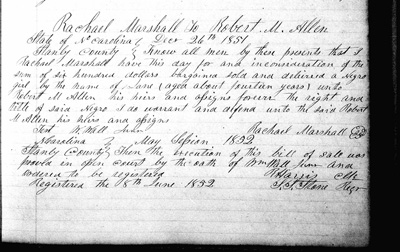 Rachael Marshall to Robert M. Allen
State of No Carolina } Decr 26th 1851
Stanly County } Know all men by these presents that I
Rachael Marshall have this day for and inconsideration of the
sum of six hundred dollars bargained sold and delivered a Negro
girl by the name of Jane (aged about fourteen years) unto
Robert M Allen his heirs and assigns forever the right and
title of said Negro I do warant and defend unto the said Robert
M Allen his heirs and assigns
Test W. Hall Rachael Marshall
N Carolina } May Session 1852
Stanly County } Then the execution of this bill of sale was
proved in open court by the oath of Wm Hall and
ordered to be registered R Harris Clk
Registered the 18th June 1852 Regr